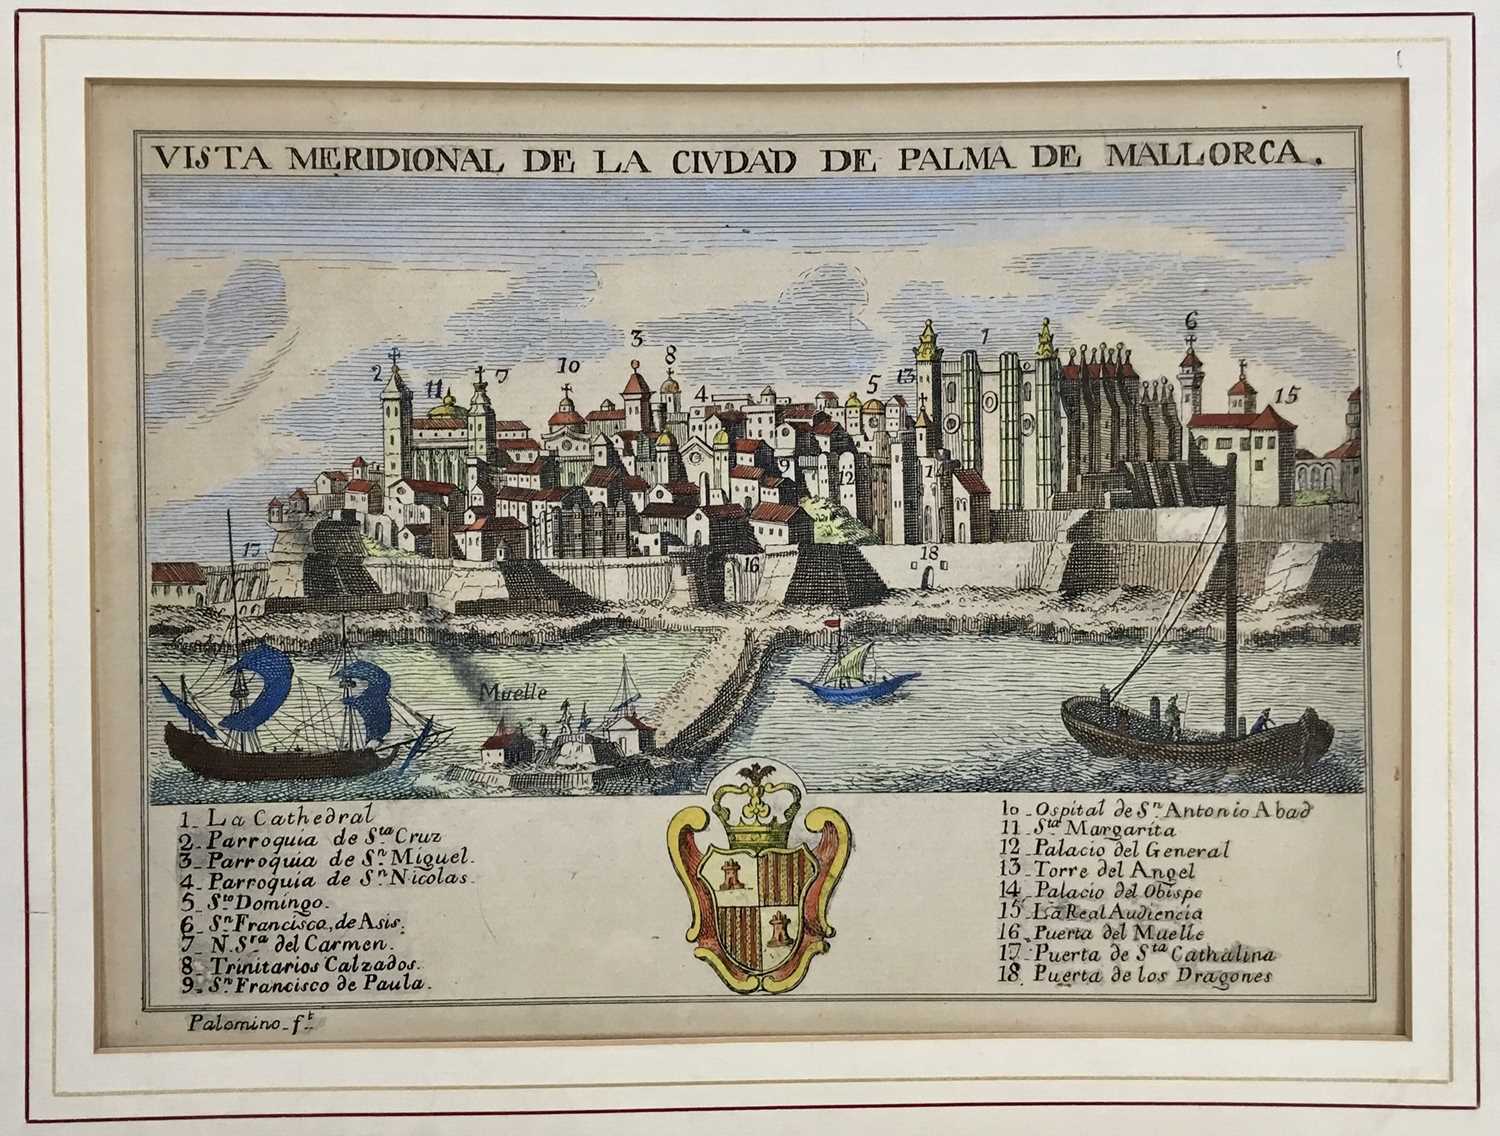 VISTA MERIDIONAL DE LA CIVDAD DE PALMA DE MALLORCA.
2
11
7
10
3
8
4
5
13
1
6
15
9
12
14
17
16
18
Muelle
1_ La Cathedral
2_ Parroquia de Sta. Cruz
3_ Parroquia de Sn. Miguel.
4_ Parroquia de Sn. Nicolas.
5_ Sto. Domingo.
6_ Sn. Francisco, de Asis.
7_ N. Sra. del Carmen.
8_ Trinitarios Calzados.
9_ Sn. Francisco de Paula.
10_ Ospital de Sn. Antonio Abad
11_ Sta. Margarita
12_ Palacio del General
13_ Torre del Angel
14_ Palacio del Obispo
15_ La Real Audiencia
16_ Puerta del Muelle
17_ Puerta de Sta. Cathalina
18_ Puerta de los Dragones
Palomino_ft.